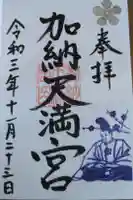 奉拝
加納天満宮
令和三年十一月二十三日